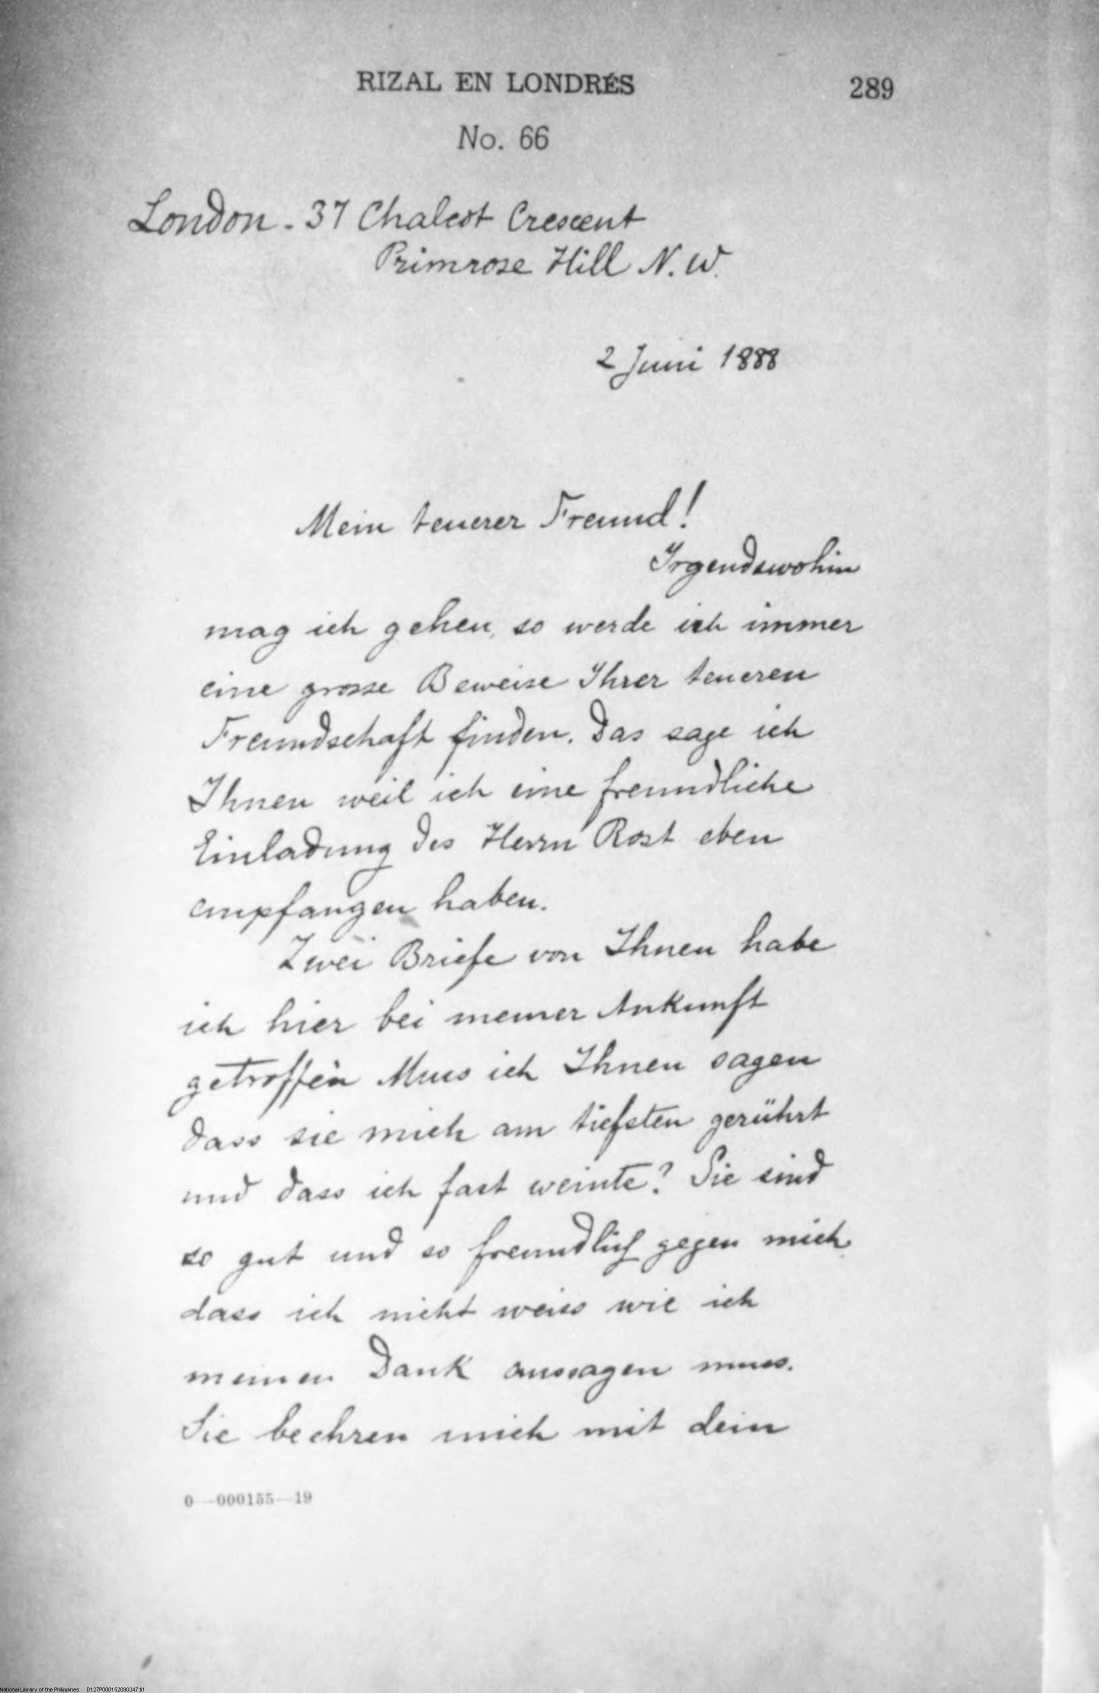 RIZAL EN LONDRES
289
No. 66
London - 37 Chalcot Crescent
Primrose Hill N. W.
2 Juni 1888
Mein teuerer Freund!
Irgendswohin
mag ich gehen, so werde ich immer
eine grosse Beweise Ihrer teueren
Freundschaft finden. Das sage ich
Ihnen weil ich eine freundliche
Einladung des Herrn Rost eben
empfangen haben.
Zwei Briefe von Ihnen habe
ich hier bei meiner Ankunft
getroffen Muss ich Ihnen sagen
dass sie mich am tiefsten gerührt
und dass ich fast weinte? Sie sind
so gut und so freundlich gegen mich
dass ich nicht weiss wie ich
meinen Dank aussagen muss.
Sie beehren mich mit dein
0—000155—19
National Library of the Philippines